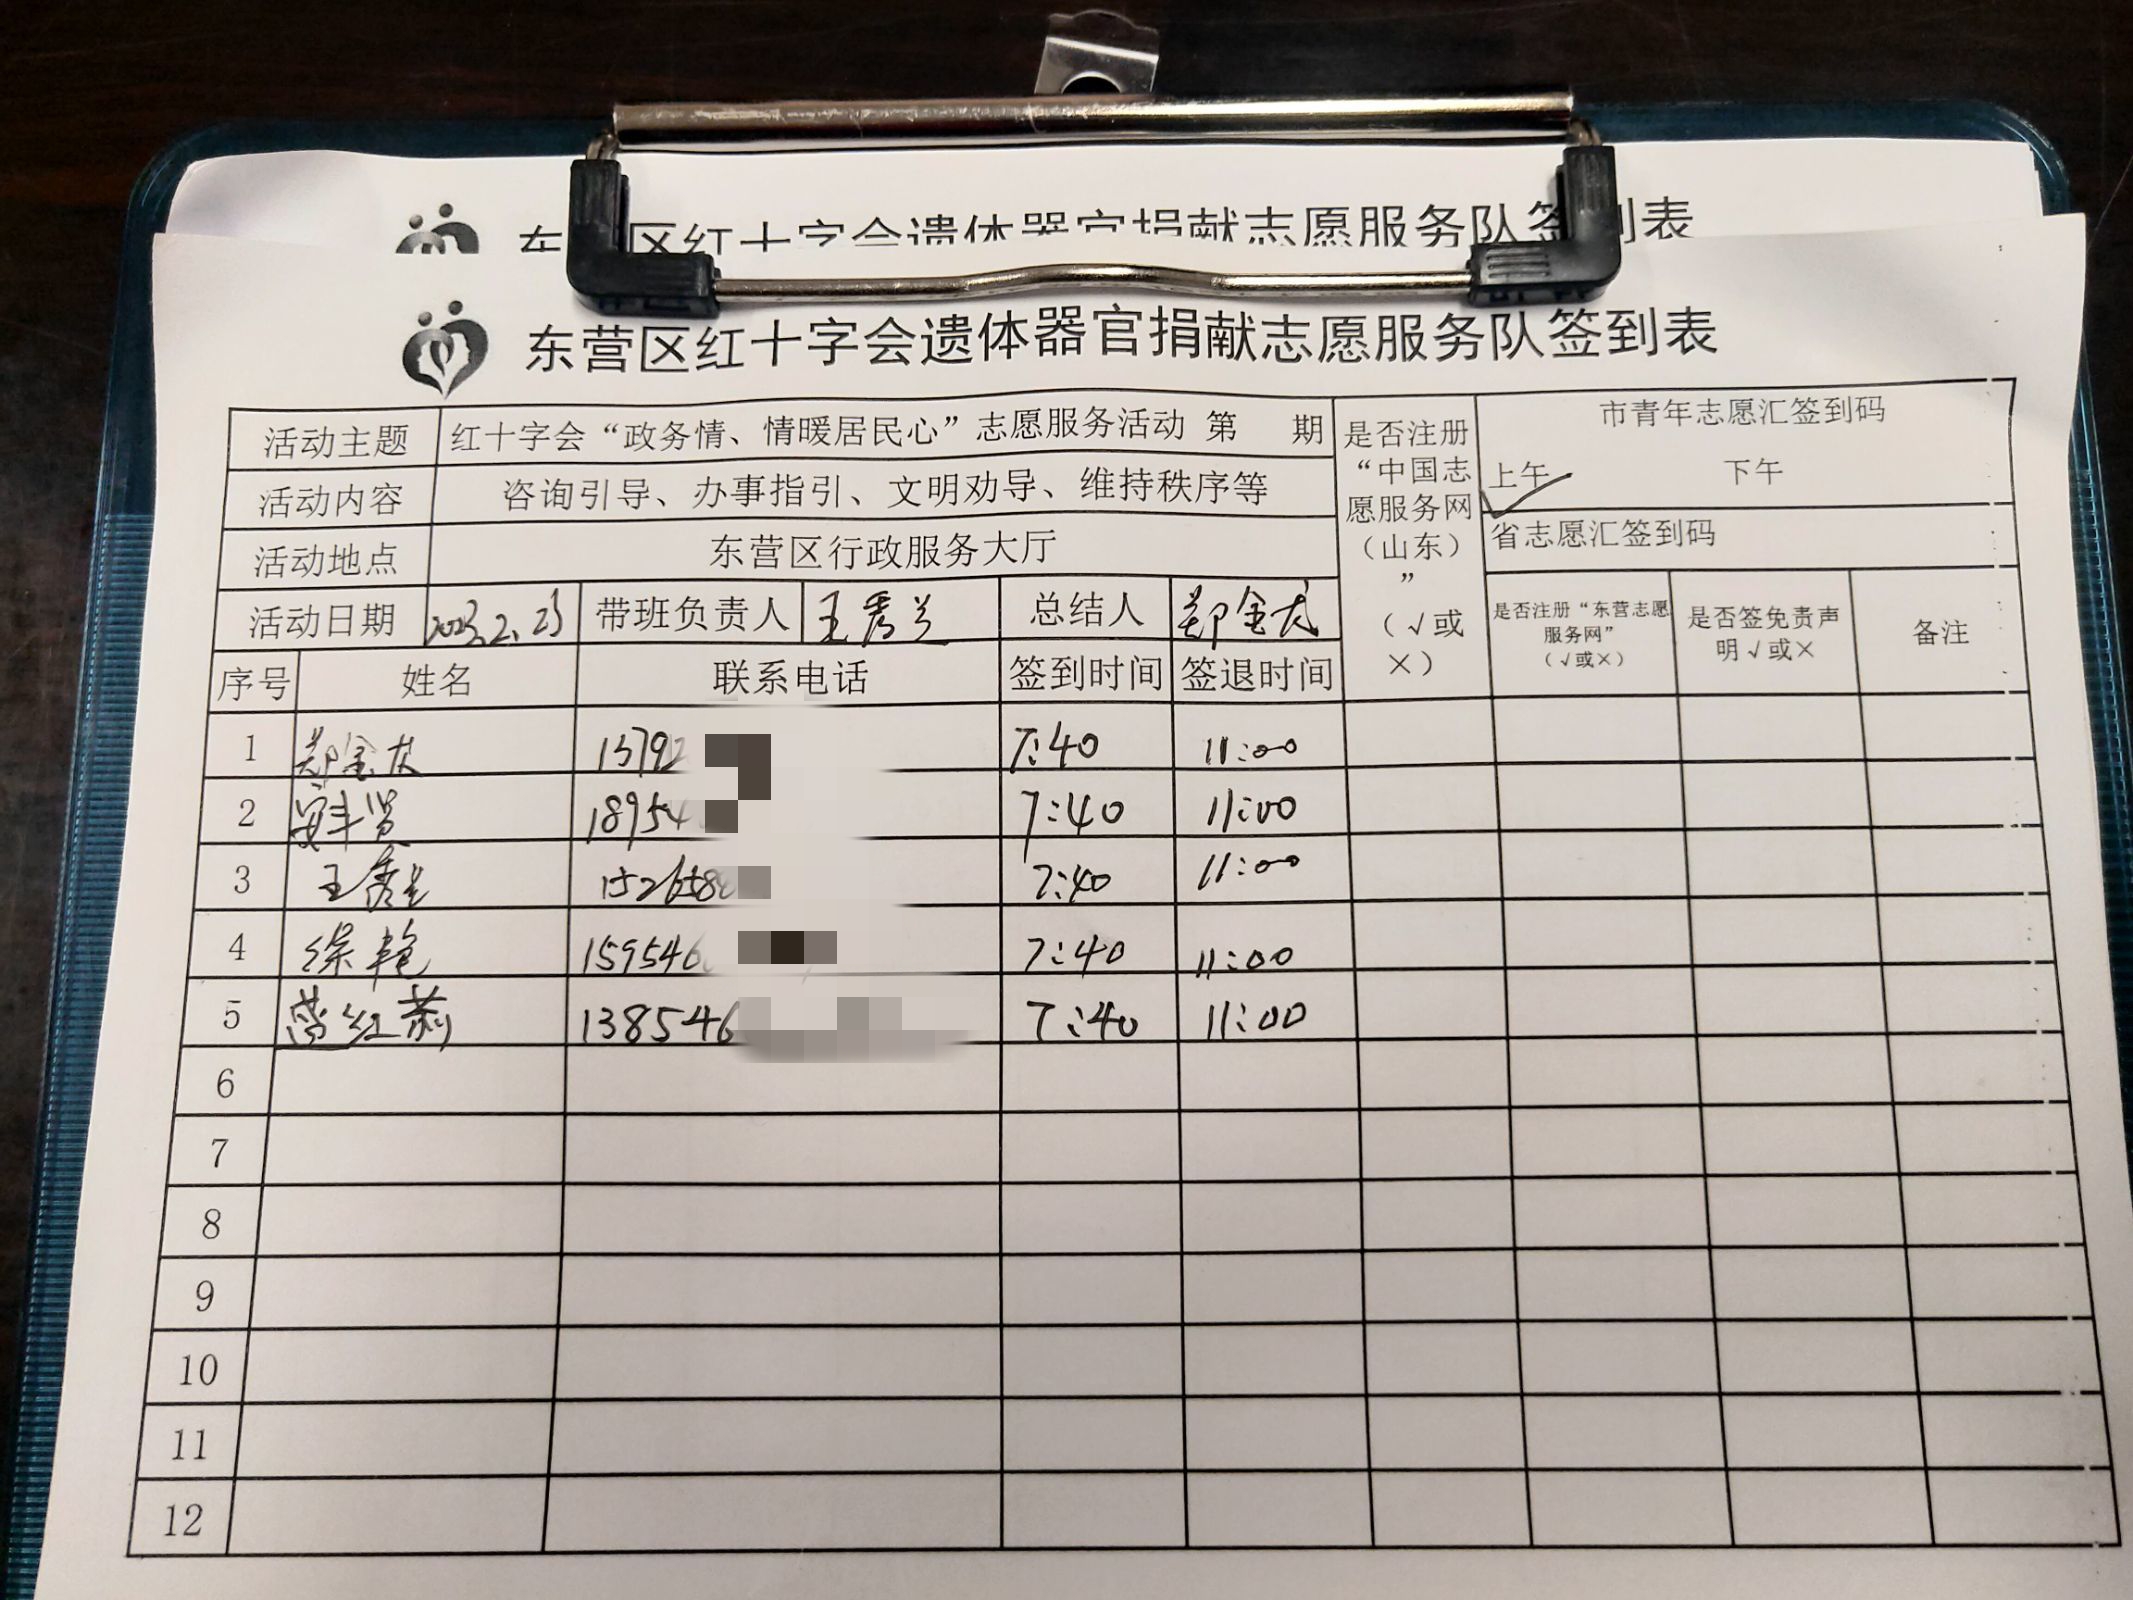 东 区红十字会遗体器官捐献志愿服务队签到表
东营区红十字会遗体器官捐献志愿服务队签到表
活动主题 红十字会“政务情、情暖居民心”志愿服务活动 第 期
活动内容 咨询引导、办事指引、文明劝导、维持秩序等
活动地点 东营区行政服务大厅
活动日期 2023.2.23 带班负责人 王秀兰 总结人 郑金龙
是否注册
“中国志
愿服务网
（山东）
”
（√或
×）
市青年志愿汇签到码
上午 ✓ 下午
省志愿汇签到码
是否注册“东营志愿
服务网”
（√或×）
是否签免责声
明√或×
备注
序号 姓名 联系电话 签到时间 签退时间
1 15792 7:40 11:00
2 18954 7:40 11:00
3 王秀兰 152658 7:40 11:00
4 徐艳 159546 7:40 11:00
5 138546 7:40 11:00
6
7
8
9
10
11
12